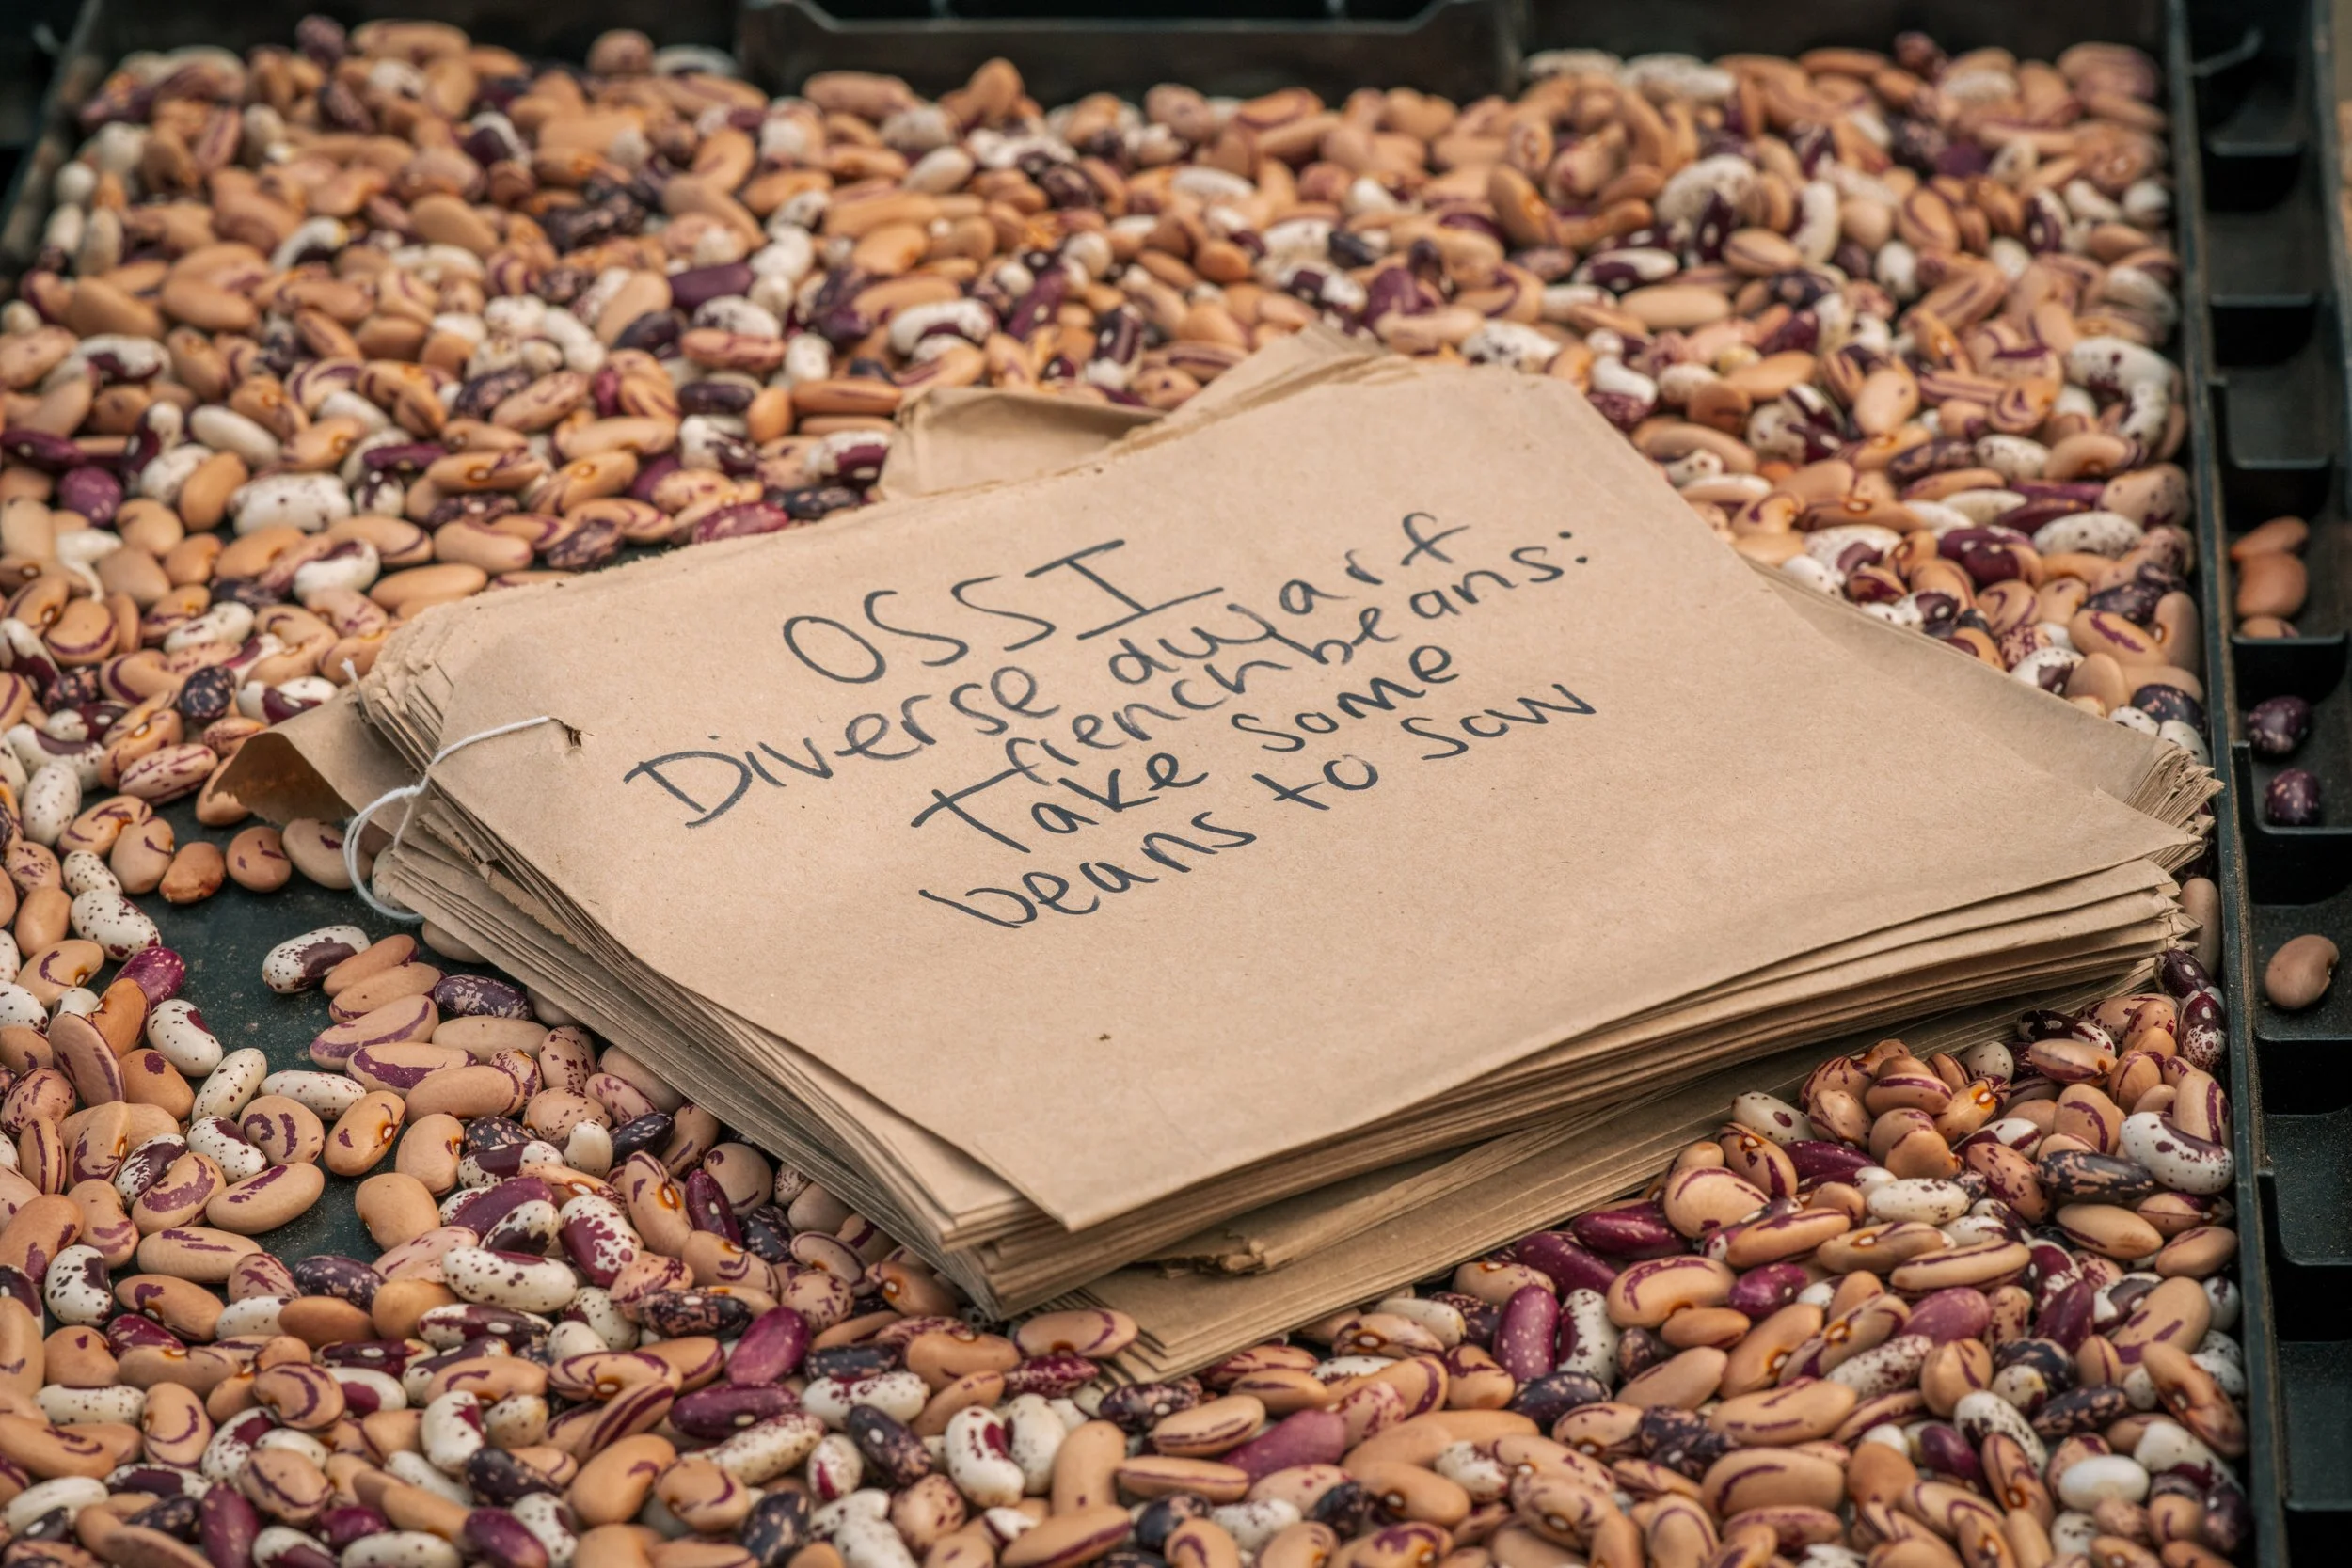 OSSI
Diverse dwarf
french beans:
Take some
beans to sow